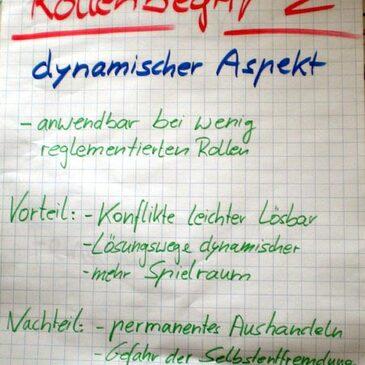 Rollenbegriff 2
dynamischer Aspekt
- anwendbar bei wenig
reglementierten Rollen
Vorteil: - Konflikte leichter lösbar
- Lösungswege dynamischer
- mehr Spielraum
Nachteil: - permanentes Aushandeln
- Gefahr der Selbstentfremdung